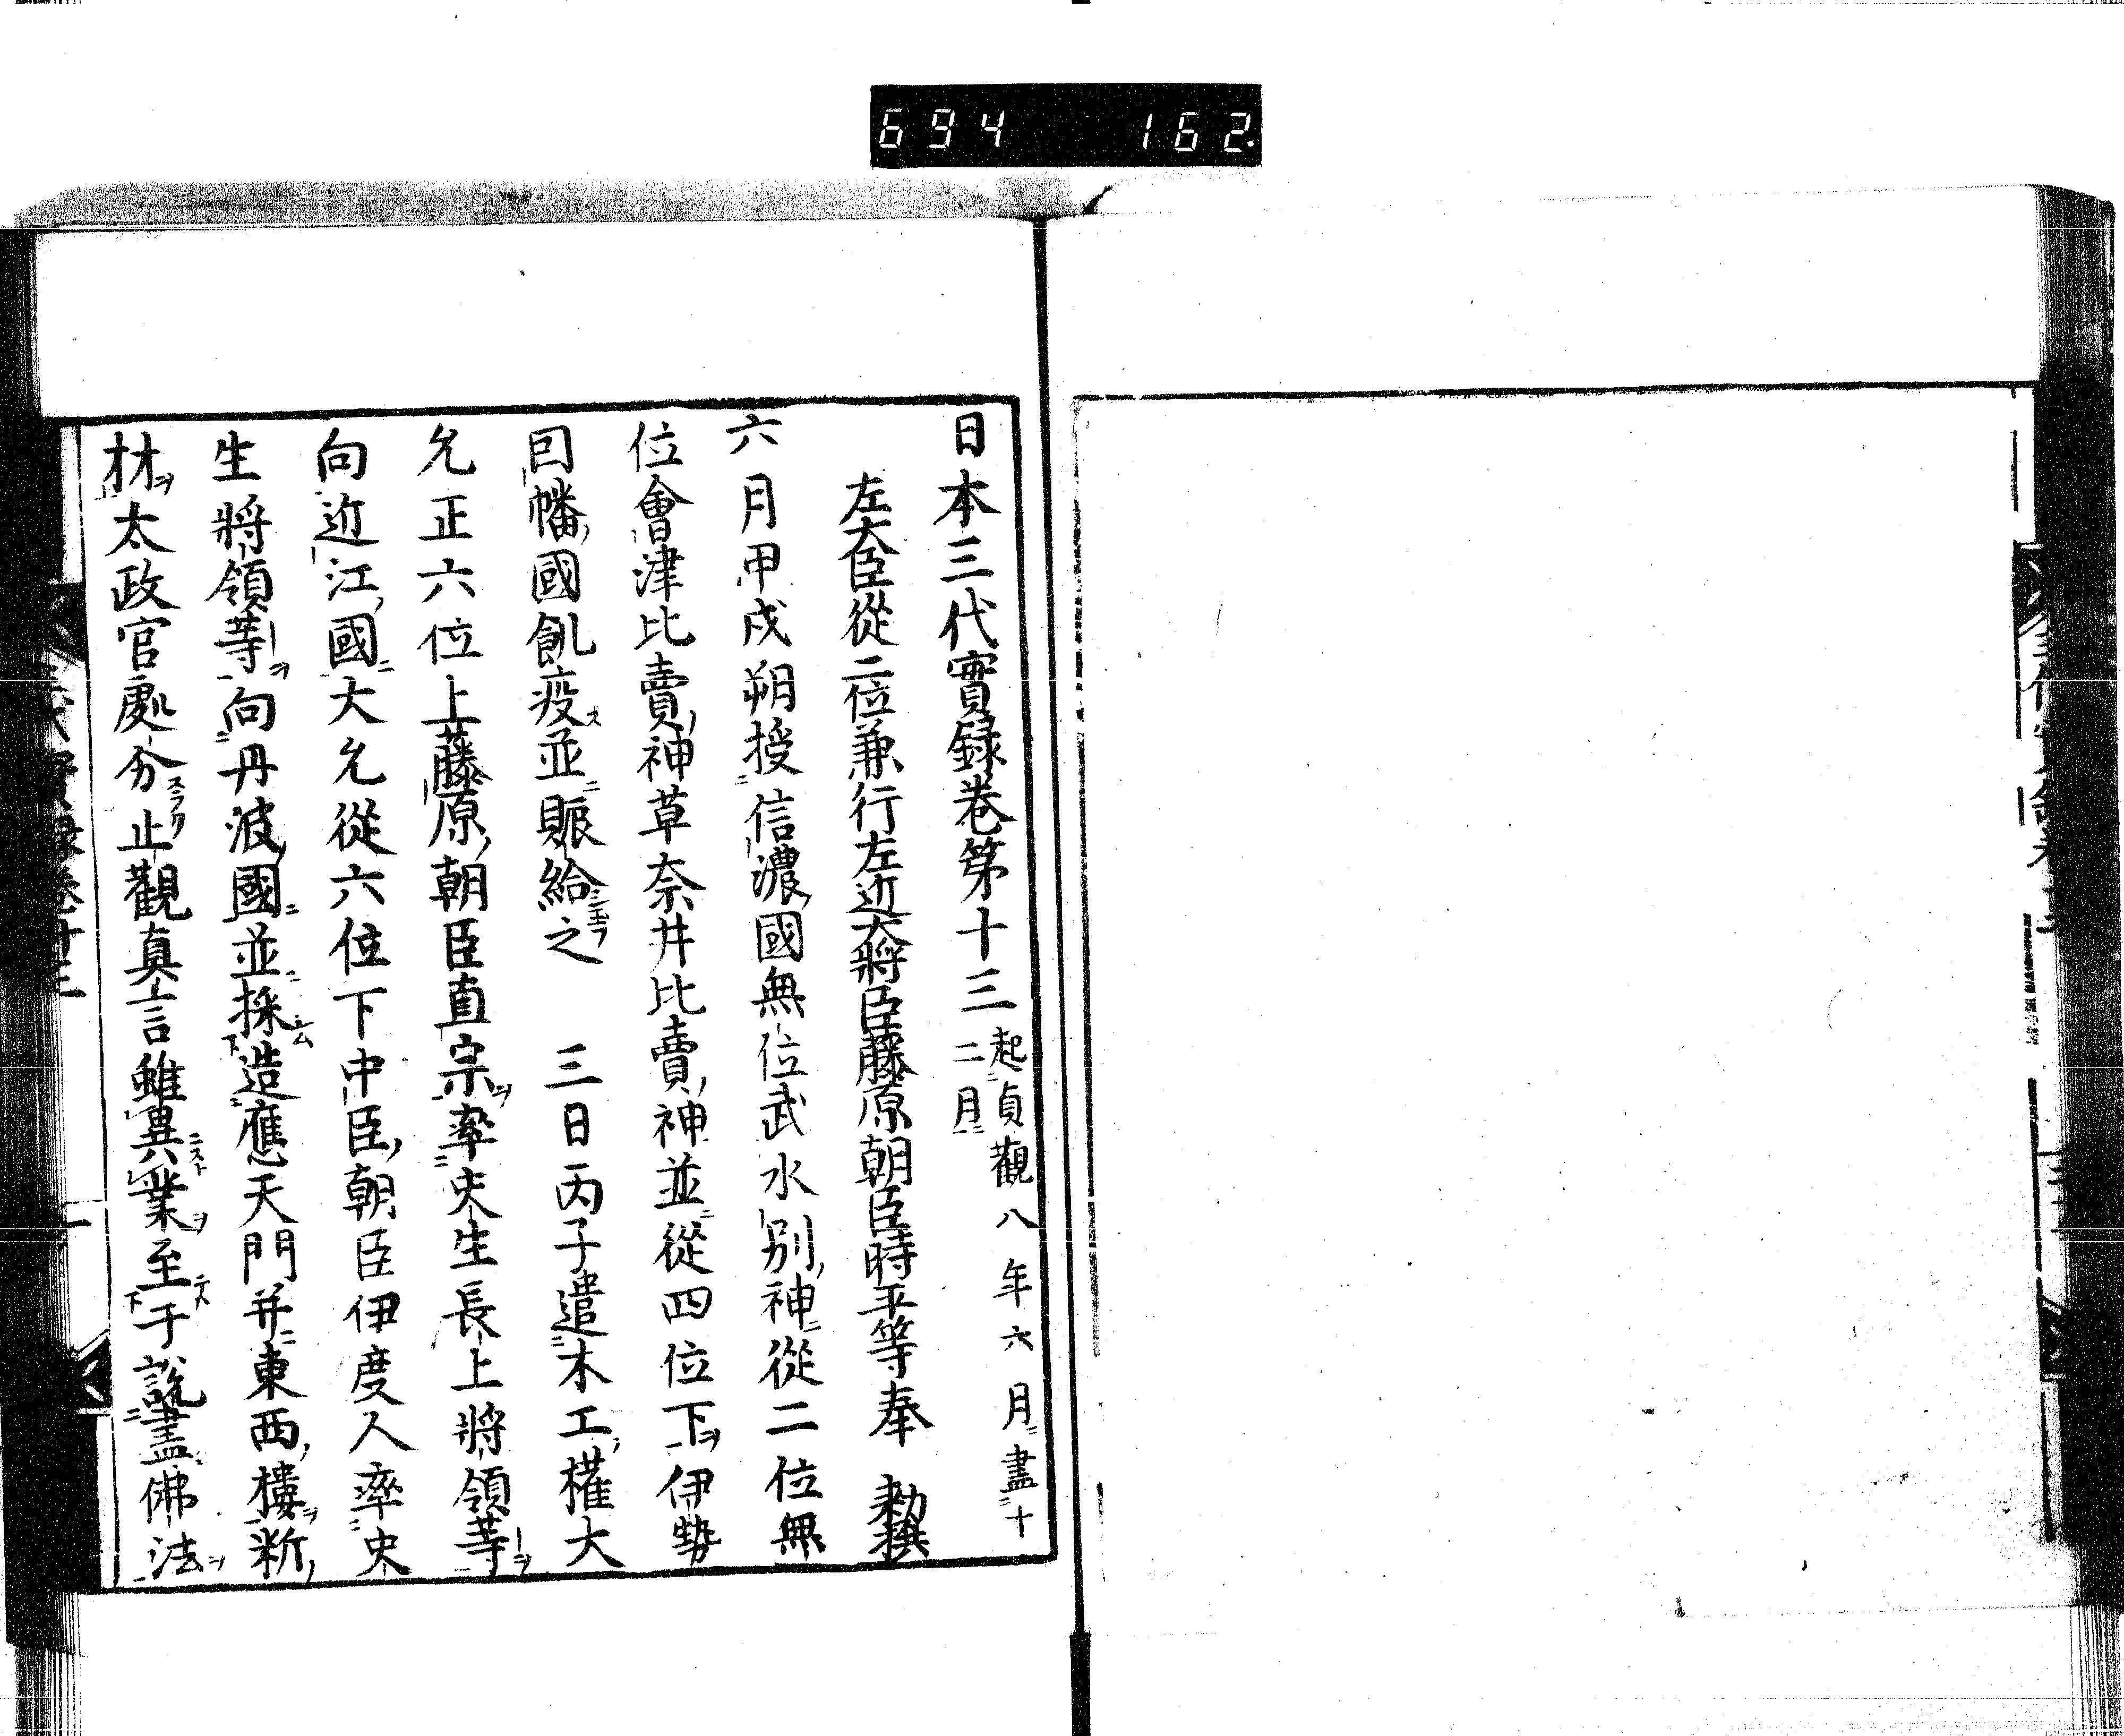 694 162
日本三代實録巻第十三 起貞觀八年六月盡十二月
左大臣從二位兼行左近大將臣藤原朝臣時平等奉 勅撰
六月甲戌朔授信濃國無位武水別神從二位無
位會津比賣神草奈井比賣神並從四位下伊勢
囙幡國飢疫並賑給之 三日丙子遣木工權大
允正六位上藤原朝臣直宗率史生長上將領等
向近江國大允從六位下中臣朝臣伊度人率史
生將領等向丹波國並採造應天門并東西樓断
材太政官處分止觀真言雖異業至于説盡佛法